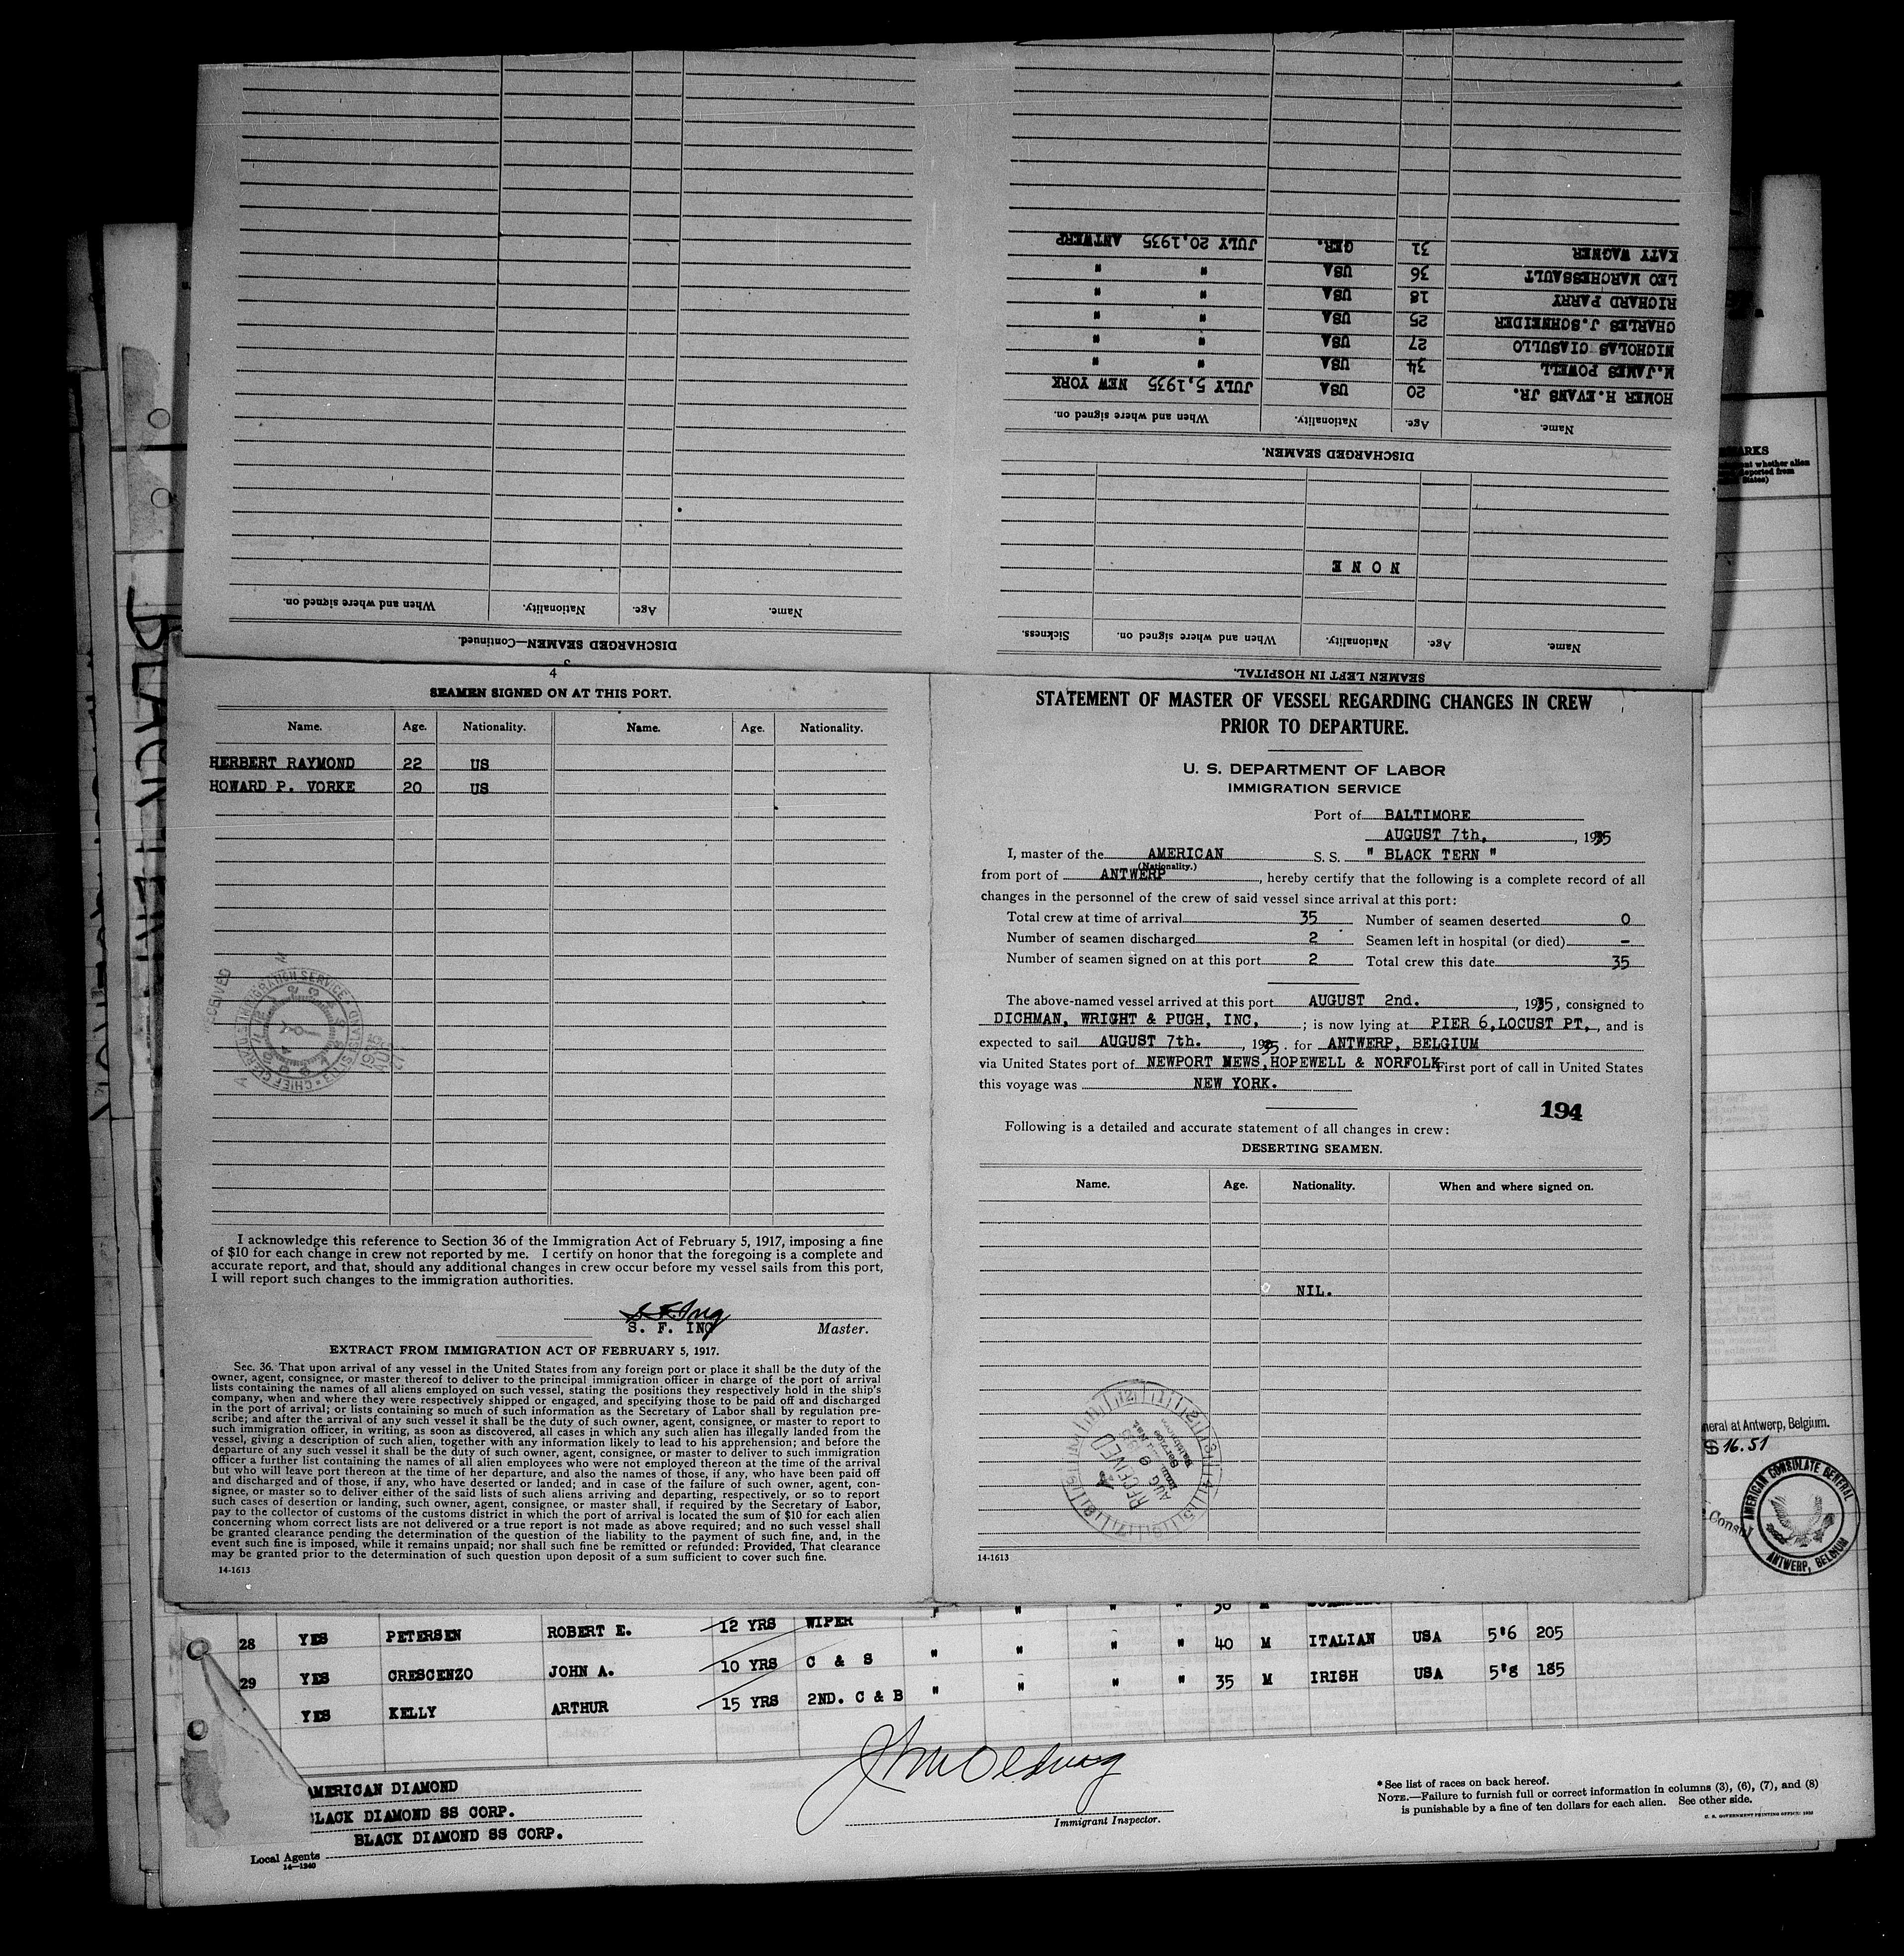 DISCHARGED SEAMEN—Continued.
Name. Age. Nationality. When and where signed on.
SEAMEN LEFT IN HOSPITAL.
Name. Age. Nationality. When and where signed on. Sickness.
NONE
DISCHARGED SEAMEN.
Name. Age. Nationality. When and where signed on.
HOMER H.EVANS JR. 20 USA JULY 5,1935 NEW YORK
M.JAMES POWELL 34 USA " "
NICHOLAS CIASULLO 27 USA " "
CHARLES J.SCHNEIDER 25 USA " "
RICHARD PARRY 18 USA " "
LEO MARCHESSAULT 36 USA " "
KATY WAGNER 31 GER. JULY 20,1935 ANTWERP
4
SEAMEN SIGNED ON AT THIS PORT.
Name. Age. Nationality. Name. Age. Nationality.
HERBERT RAYMOND 22 US
HOWARD P. VORKE 20 US
I acknowledge this reference to Section 36 of the Immigration Act of February 5, 1917, imposing a fine
of $10 for each change in crew not reported by me. I certify on honor that the foregoing is a complete and
accurate report, and that, should any additional changes in crew occur before my vessel sails from this port,
I will report such changes to the immigration authorities.
S F Ing
S. F. ING Master.
EXTRACT FROM IMMIGRATION ACT OF FEBRUARY 5, 1917.
Sec. 36. That upon arrival of any vessel in the United States from any foreign port or place it shall be the duty of the
owner, agent, consignee, or master thereof to deliver to the principal immigration officer in charge of the port of arrival
lists containing the names of all aliens employed on such vessel, stating the positions they respectively hold in the ship's
company, when and where they were respectively shipped or engaged, and specifying those to be paid off and discharged
in the port of arrival; or lists containing so much of such information as the Secretary of Labor shall by regulation pre-
scribe; and after the arrival of any such vessel it shall be the duty of such owner, agent, consignee, or master to report to
such immigration officer, in writing, as soon as discovered, all cases in which any such alien has illegally landed from the
vessel, giving a description of such alien, together with any information likely to lead to his apprehension; and before the
departure of any such vessel it shall be the duty of such owner, agent, consignee, or master to deliver to such immigration
officer a further list containing the names of all alien employees who were not employed thereon at the time of the arrival
but who will leave port thereon at the time of her departure, and also the names of those, if any, who have been paid off
and discharged and of those, if any, who have deserted or landed; and in case of the failure of such owner, agent, con-
signee, or master so to deliver either of the said lists of such aliens arriving and departing, respectively, or so to report
such cases of desertion or landing, such owner, agent, consignee, or master shall, if required by the Secretary of Labor,
pay to the collector of customs of the customs district in which the port of arrival is located the sum of $10 for each alien
concerning whom correct lists are not delivered or a true report is not made as above required; and no such vessel shall
be granted clearance pending the determination of the question of the liability to the payment of such fine, and, in the
event such fine is imposed, while it remains unpaid; nor shall such fine be remitted or refunded: Provided, That clearance
may be granted prior to the determination of such question upon deposit of a sum sufficient to cover such fine.
14-1613
STATEMENT OF MASTER OF VESSEL REGARDING CHANGES IN CREW
PRIOR TO DEPARTURE.
U. S. DEPARTMENT OF LABOR
IMMIGRATION SERVICE
Port of BALTIMORE
AUGUST 7th, , 1935
I, master of the AMERICAN S. S. " BLACK TERN "
(Nationality.)
from port of ANTWERP , hereby certify that the following is a complete record of all
changes in the personnel of the crew of said vessel since arrival at this port:
Total crew at time of arrival 35 Number of seamen deserted 0
Number of seamen discharged 2 Seamen left in hospital (or died) -
Number of seamen signed on at this port 2 Total crew this date 35
The above-named vessel arrived at this port AUGUST 2nd. , 1935, consigned to
DICHMAN, WRIGHT & PUGH, INC, ; is now lying at PIER 6,LOCUST PT, , and is
expected to sail AUGUST 7th. , 1935, for ANTWERP, BELGIUM
via United States port of NEWPORT NEWS,HOPEWELL & NORFOLK First port of call in United States
this voyage was NEW YORK.
194
Following is a detailed and accurate statement of all changes in crew:
DESERTING SEAMEN.
Name. Age. Nationality. When and where signed on.
NIL.
RECEIVED
14-1613
BLACK TERN
General at Antwerp, Belgium.
$ 16.51
AMERICAN CONSULATE GENERAL
ANTWERP, BELGIUM
28 YES PETERSEN ROBERT E. 12 YRS WIPER
29 YES CRESCENZO JOHN A. 10 YRS C & S " " " " 40 M ITALIAN USA 5'6 205
YES KELLY ARTHUR 15 YRS 2ND. C & B " " " " 35 M IRISH USA 5'8 185
AMERICAN DIAMOND
BLACK DIAMOND SS CORP.
BLACK DIAMOND SS CORP.
Local Agents
14—1240
Immigrant Inspector.
* See list of races on back hereof.
NOTE.—Failure to furnish full or correct information in columns (3), (6), (7), and (8)
is punishable by a fine of ten dollars for each alien. See other side.
U. S. GOVERNMENT PRINTING OFFICE: 1932